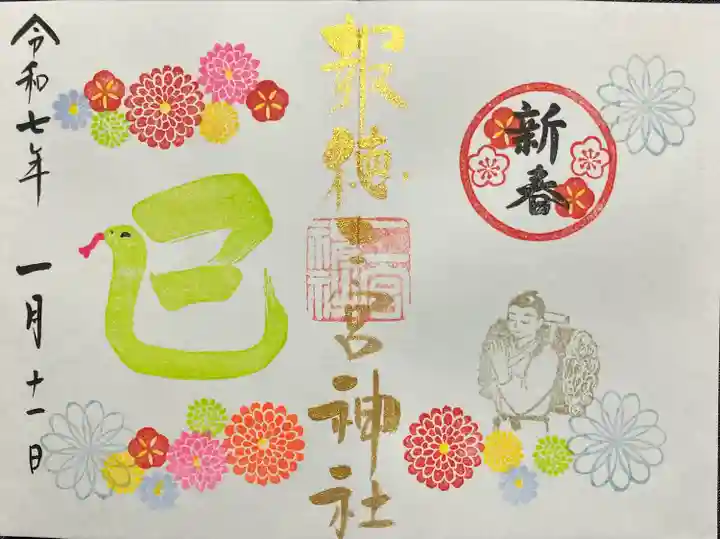 新春
報徳二宮神社
二宮神社
巳
令和七年 一月十一日